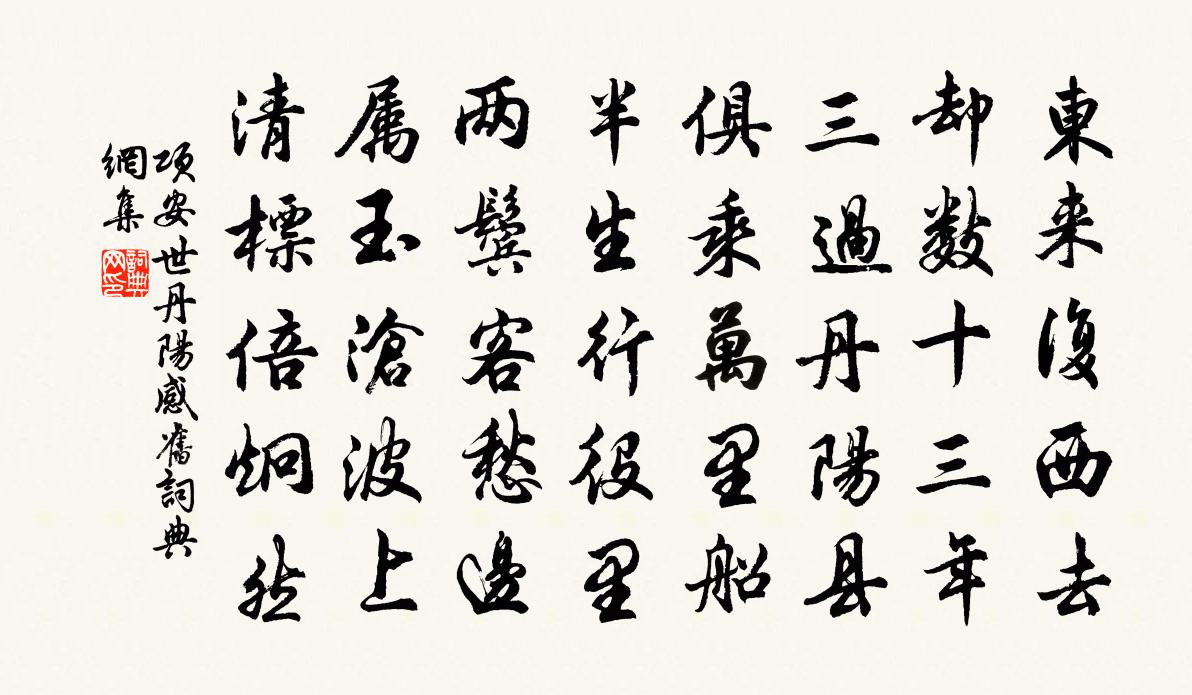 東来復西去
却数十三年
三過丹陽县
俱乘萬里船
半生行役里
两鬓客愁邊
属玉滄波上
清標倍炯然
項安世丹陽感舊詞典
網集
詞典
网印